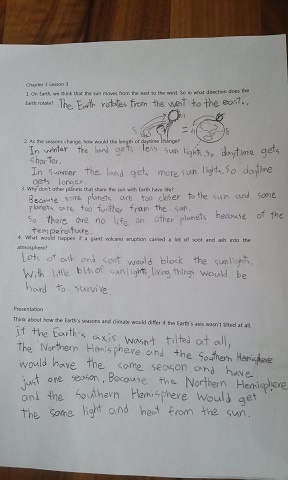 Chapter 3 Lesson 3
1. On Earth, we think that the sun moves from the east to the west. So in what direction does the
Earth rotate? The Earth rotates from the west to the east..
2. As the seasons change, how would the length of daytime change?
In winter the land gets less sun lights, so daytime gets
shorter.
In summer the land gets more sun lights. So daytime
gets longer.
3. Why don't other planets that share the sun with Earth have life?
Because some planets are too closer to the sun and some
planets are too further from the sun.
So there are no life on other planets because of the
temperature.
4. What would happen if a giant volcano eruption carried a lot of soot and ash into the
atmosphere?
Lots of ash and soot would block the sunlights.
With little bits of sunlights, living things would be
hard to survive.
Presentation
Think about how the Earth's seasons and climate would differ if the Earth's axis wasn't tilted at all,
if the Earth's axis wasn't tilted at all,
the Northern Hemisphere and the Southern Hemisphere
would have the same season and have
just one season. Because the Northern Hemisphere
and the Southern Hemisphere would get
the same light and heat from the sun.